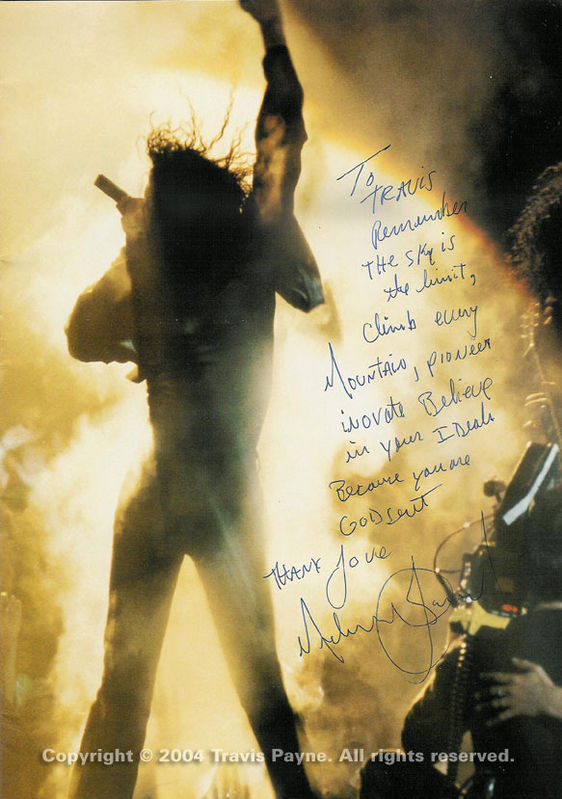 To
TRAVIS
Remember
THE SKY is
the limit,
climb every
Mountain, pioneer
inovate Believe
in your IDeals
Because you are
GODsent
THANK Love
Michael Jackson
Copyright © 2004 Travis Payne. All rights reserved.